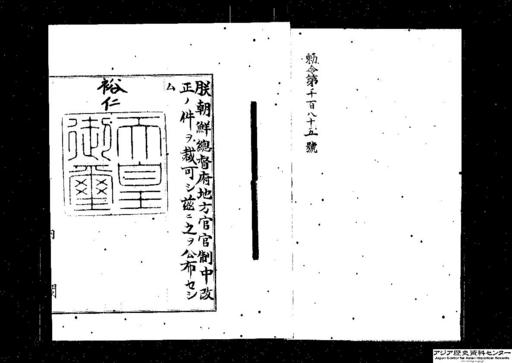 勅令第千百八十五號
朕朝鮮總督府地方官官制中改
正ノ件ヲ裁可シ茲ニ之ヲ公布セシ
ム
裕仁
天皇
御璽
内閣
アジア歴史資料センター
Japan Center for Asian Historical Records